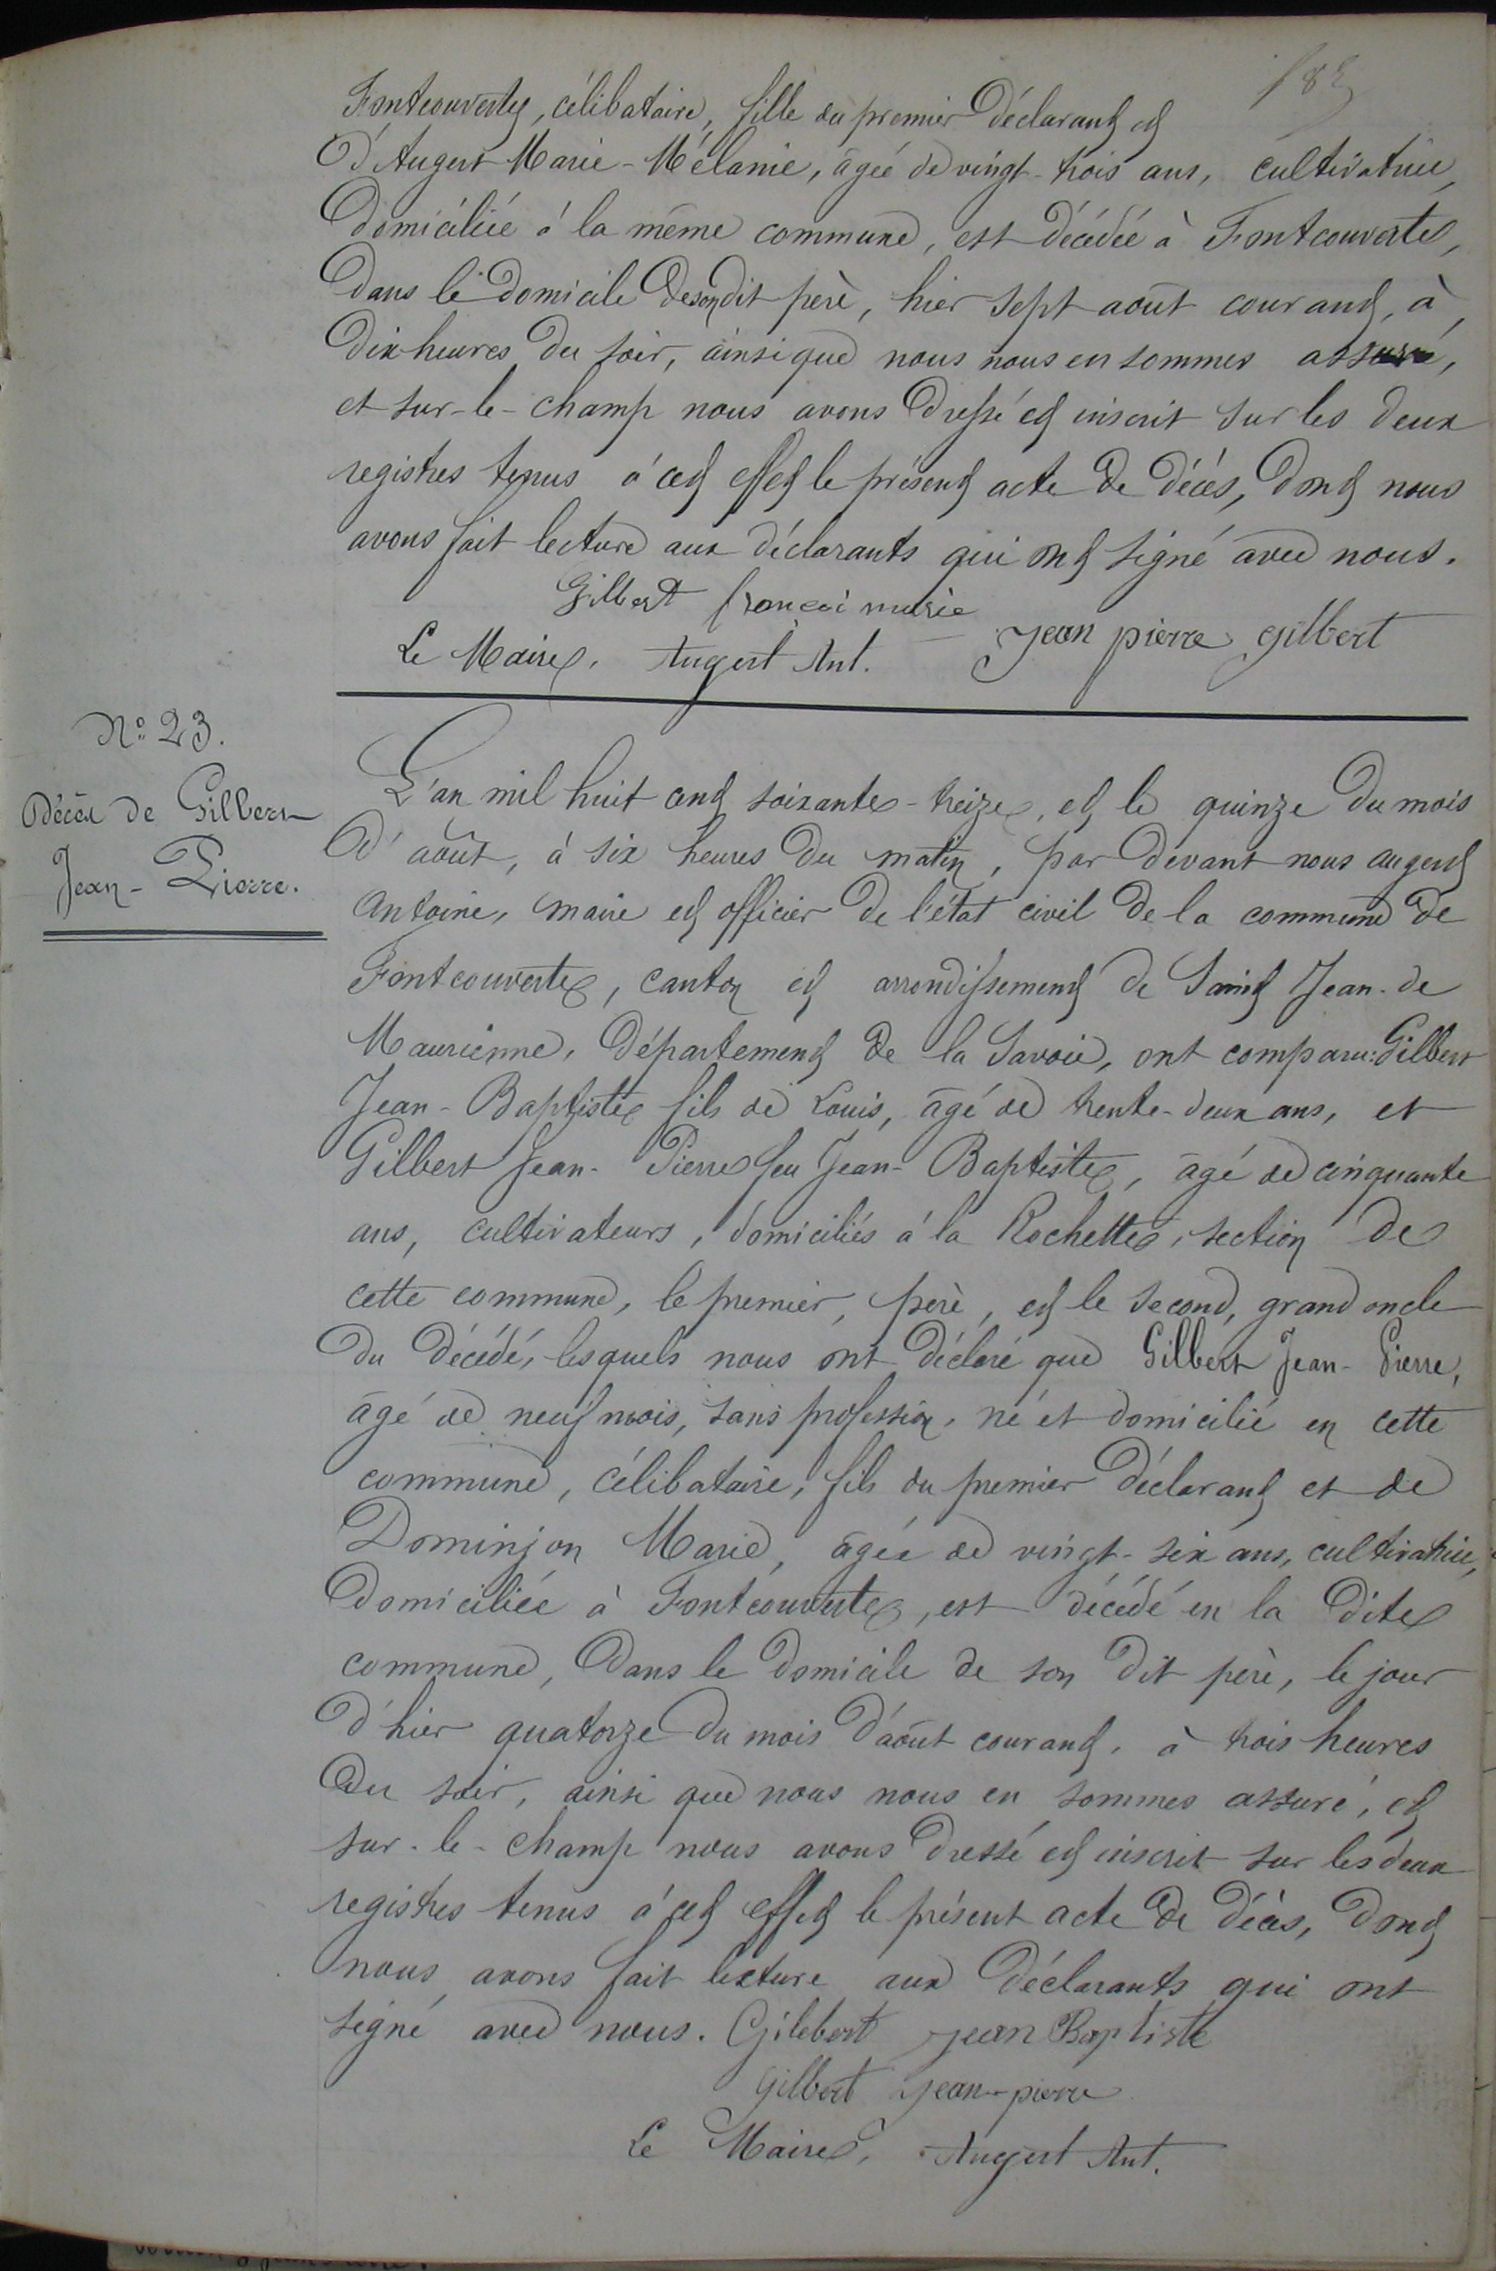 Fontcouverte, célibataire, fille du premier déclarant et
d'Augert Marie-Mélanie, âgée de vingt-trois ans, cultivatrice,
domiciliée à la même commune, est décédée à Fontcouverte,
dans le domicile de son dit père, hier sept août courant, à
dix heures du soir, ainsi que nous nous en sommes assuré,
et sur-le-champ nous avons dressé et inscrit sur les deux
registres tenus à cet effet le présent acte de décès, dont nous
avons fait lecture aux déclarants qui ont signé avec nous.
Gilbert françoi marie
jean pierre gilbert
Le Maire, Augert Ant.
N° 23.
Décès de Gilbert
Jean-Pierre.
L'an mil huit cent soixante-treize, et le quinze du mois
d'août, à six heures du matin, par devant nous augert
Antoine, maire et officier de l'état civil de la commune de
Fontcouverte, canton et arrondissement de Saint Jean-de
Maurienne, département de la Savoie, ont comparu: Gilbert
Jean-Baptiste fils de Louis, âgé de trente-deux ans, et
Gilbert Jean-Pierre feu Jean-Baptiste, âgé de cinquante
ans, cultivateurs, domiciliés à la Rochette, section de
cette commune, le premier, père, et le second, grand oncle
du décédé, lesquels nous ont déclaré que Gilbert Jean-Pierre,
âgé de neuf mois, sans profession, né et domicilié en cette
commune, célibataire, fils du premier déclarant et de
Dominjon Marie, âgée de vingt-six ans, cultivatrice,
domiciliée à Fontcouverte, est décédé en la dite
commune, dans le domicile de son dit père, le jour
d'hier quatorze du mois d'août courant, à trois heures
du soir, ainsi que nous nous en sommes assuré, et
sur-le-champ nous avons dressé et inscrit sur les deux
registres tenus à cet effet le présent acte de décès, dont
nous avons fait lecture aux déclarants qui ont
signé avec nous. Gilebert jean Baptiste
Gilbert jean-pierre
Le Maire, Augert Ant.